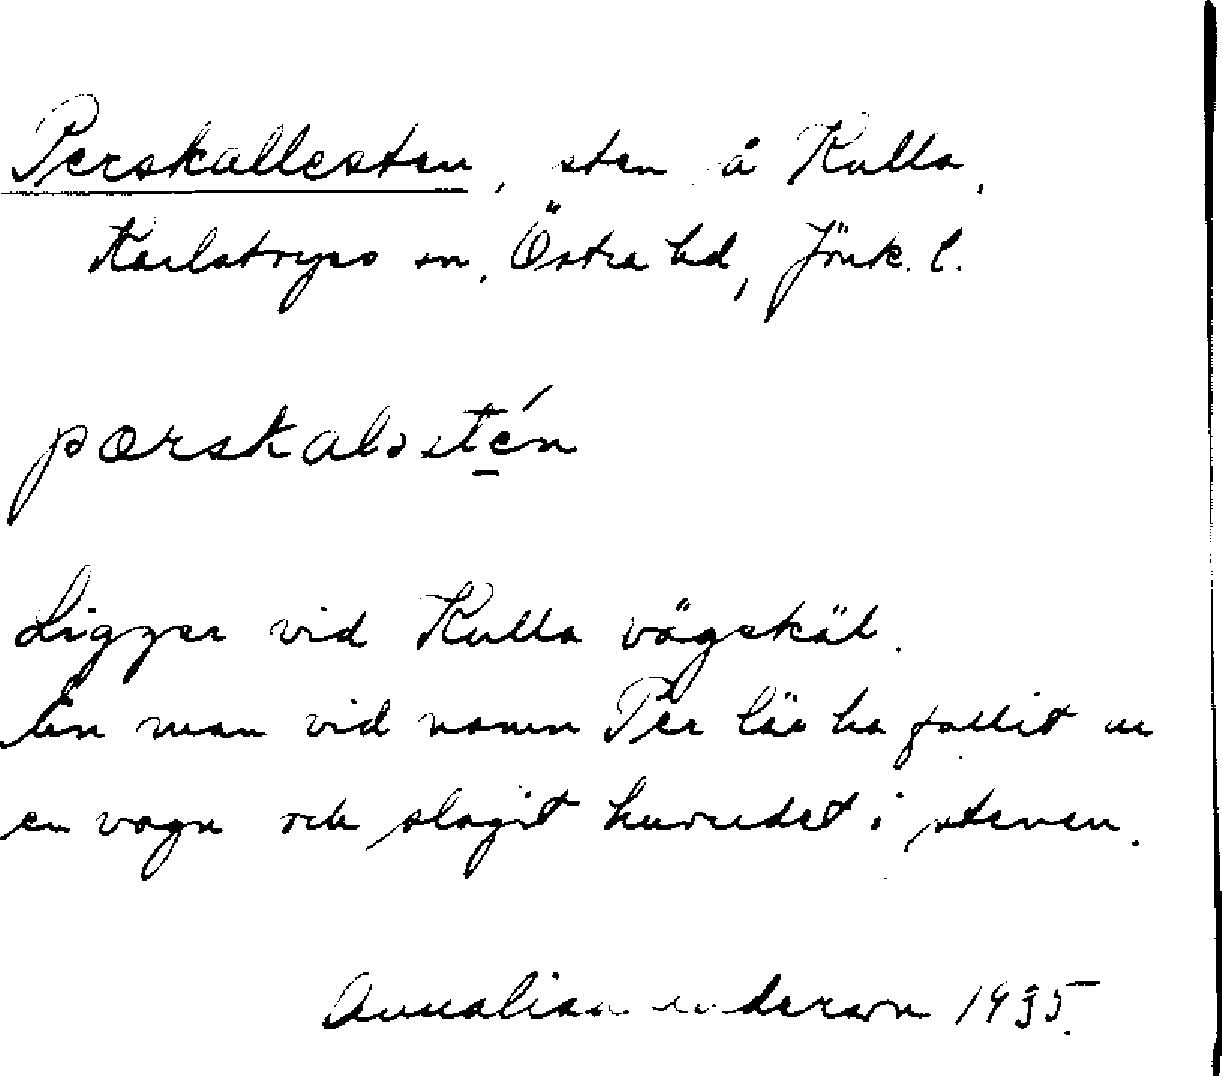 Perskallesten, sten å Kulla,
Karlstorps sn, Östra hd, Jönk. l.
pærskaləstén
Ligger vid Kulla vägskäl.
En man vid namn Per läs ha fallit ur
en vagn och slagit huvudet i stenen.
Annalisa Anderson 1935.